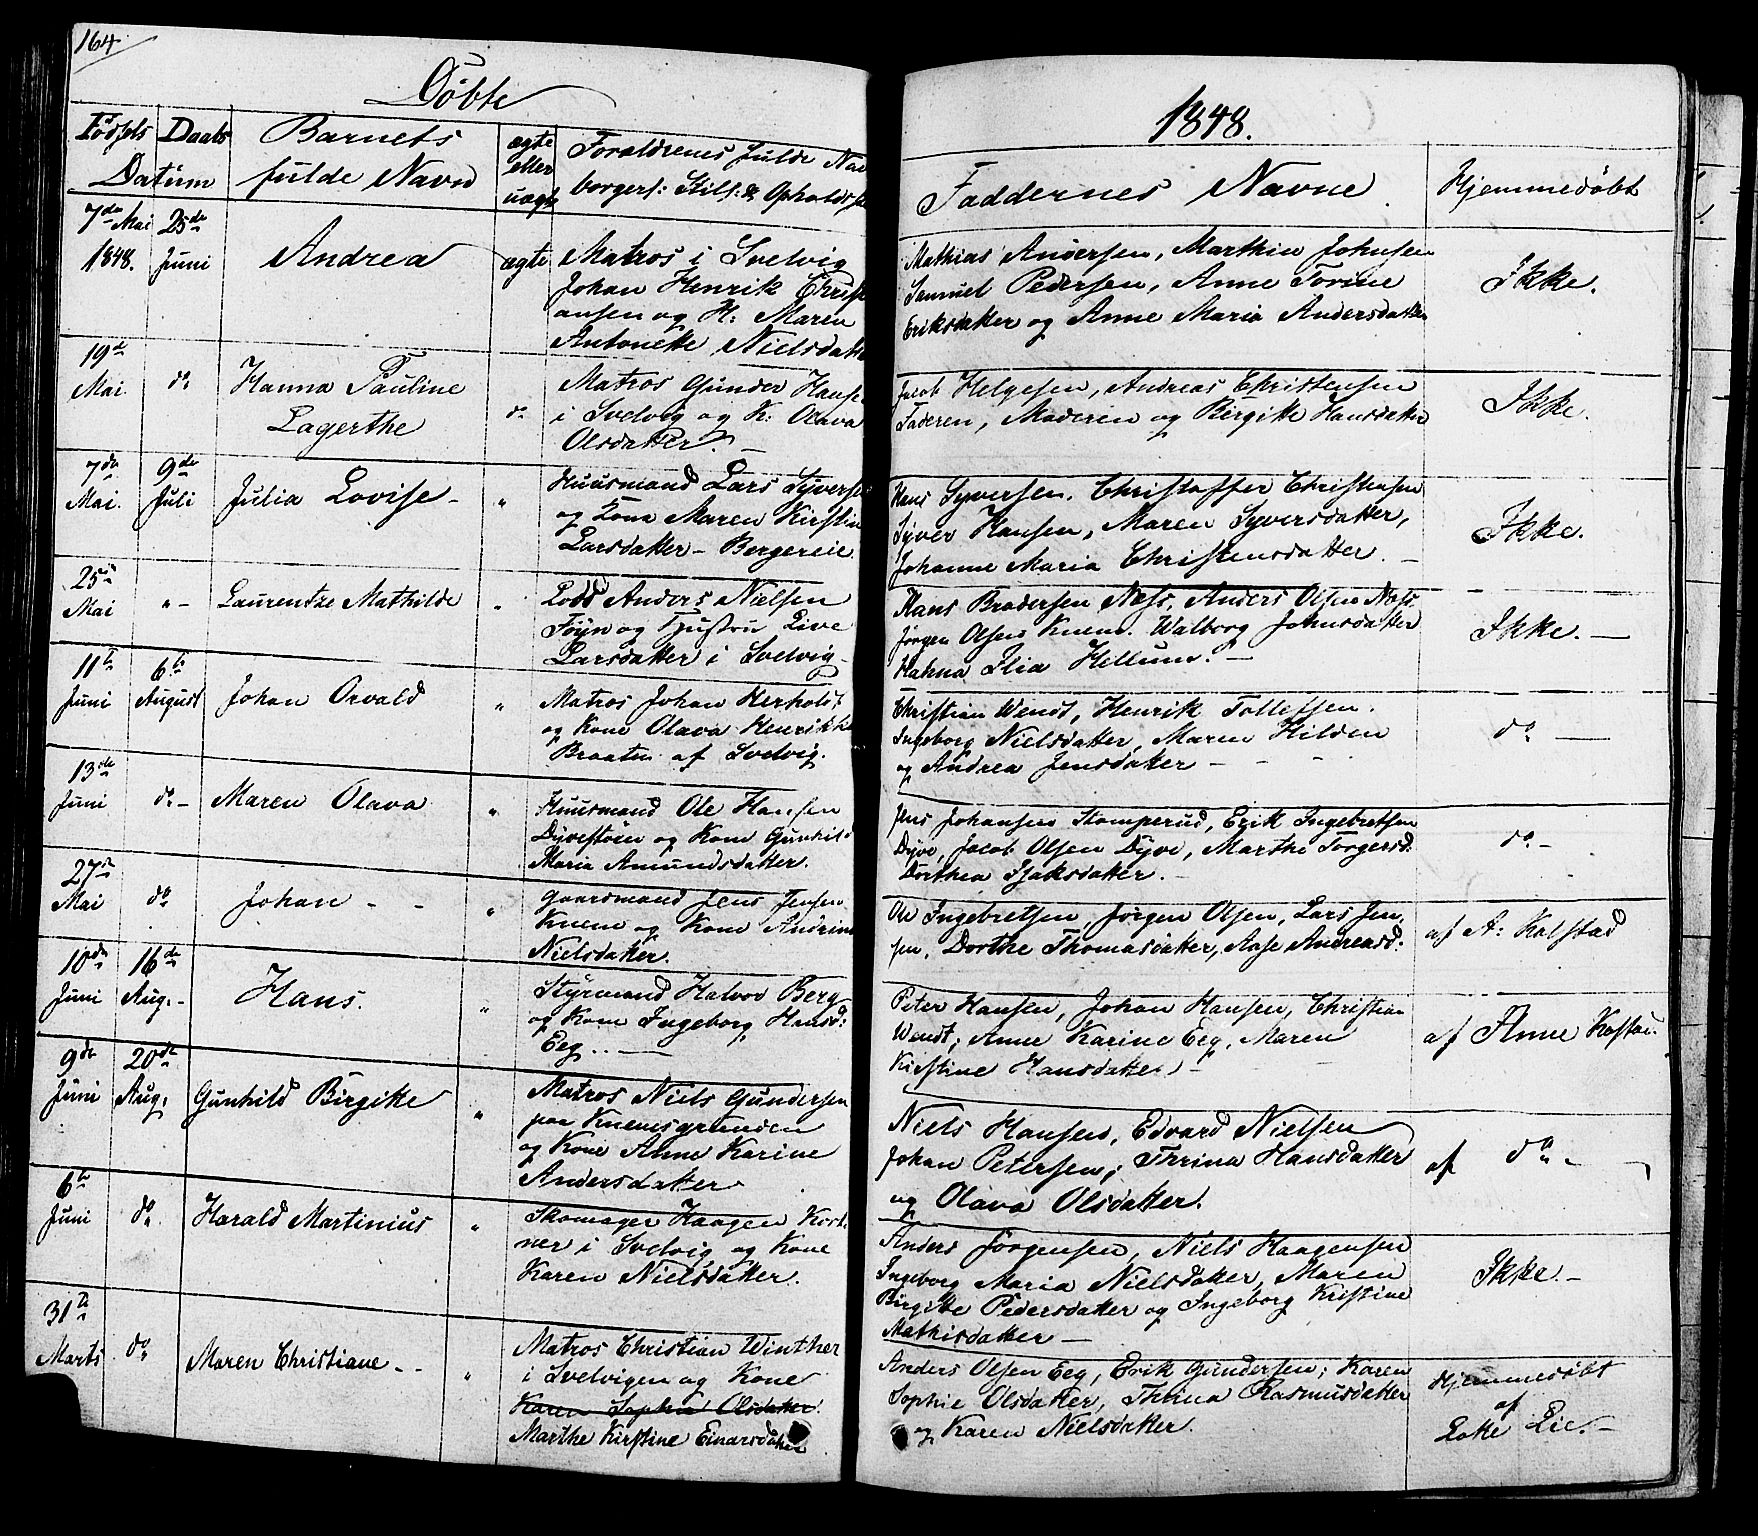 164
Döbte
1848.
Födsels Daabs Datum
Barnets fulde Navn
ægte eller uægte
Forældrenes fulde Nav
borgerl: Still: & Opholds
Faddernes Navne
Hjemmedøbt
7de Mai 1848.
25de Juni
Andrea
ægte
Matros i Svelvig
Johan Henrik Christ
ansen og K: Maren
Antonette Nielsdatte
Mathias Andersen, Marthin Johnsen
Samuel Pedersen, Anne Torine
Eriksdatter og Anne Maria Andersdatter
Ikke.
19de Mai
do
Hanna Pauline
Lagerthe
do
Matros Gunder Hanse
i Svelvig og K: Olava
Olsdatter. —
Jacob Helgesen, Andreas Christensen
Faderen, Moderen og Birgitte Hansdatter
Ikke.
7de Mai.
9de Juli
Julia Lovise -
"
Huusmand Lars Syverse
og Kone Maren Kirstin
Larsdatter - Bergereie.
Hans Syversen. Christoffer Christensen
Syver Hansen, Maren Syversdatter,
Johanne Maria Christensdatter. —
Ikke.
25de Mai
" -
Laurentze Mathilde
"
Lods Anders Nielsen
Föyn og Hustru Live
Larsdatter i Svelvig.
Hans Brodersen Næss, Anders Olsen Næss.
Jørgen Olsen Knem. Walborg Johnsdatter
Hanna Ilia Hellum. —
Ikke. —
11te Juni
6te August
Johan Orvald
"
Matros Johan Herholdt
og Kone Olava Henrikke
Braaten af Svelvig.
Christian Wendt, Henrik Tollefsen.
Ingeborg Nielsdatter, Maren Hilden
og Andrea Jensdatter - - - -
do —
13de Juni
do -
Maren Olava
"
Huusmand Ole Hansen
Dyvestøien og Kone Gunhild
Maria Amundsdatter.
Jens Johansen Stomperud, Erik Ingebretsen
Dyve, Jacob Olsen Dyve, Marthe Torgersd:
Dorthea Isaksdatter. -
do -
27de Mai
do
Johan - -
"
Gaardmand Jens Jensen
Knem og Kone Andrine
Nielsdatter.
Ole Ingebretsen, Jørgen Olsen, Lars Jen-
sen, Dorthe Thomasdatter, Aase Andreasd:
af A: Kolstad
10de Juni
16de Aug. -
Hans.
"
Styrmand Halvor Berg
og Kone Ingeborg Hansd:
Eeg. . —
Peter Hansen, Johan Hansen, Christian
Wendt; Anne Karine Eeg, Maren
Kirstine Hansdatter -
af Anne
9de Juni
20de Aug.
Gunhild Birgitte
"
Matros Niels Gundersen
paa Knemsgrunden
og Kone Anne Karine
Andersdatter
Niels Hansen, Edvard Nielsen
Johan Petersen; Thrina Hansdatter
og Olava Olsdatter.
af do -
6te Juni
do
Harald Martinius
"
Skomager Haagen Kort-
ner i Svelvig og Kone
Karen Nielsdatter.
Anders Jörgensen, Niels Haagensen
Ingeborg Maria Nielsdatter, Maren
Birgitte Pedersdatter og Ingeborg Kristine
Mathisdatter —
Ikke. -
31te Marts
do
Maren Christiane - -
"
Matros Christian Winther
i Svelvigen og Kone
Karen Sophia Olsdatter.
Marthe Kirstine Einarsdatter
Anders Olsen Eeg, Erik Gundersen; Karen
Sophie Olsdatter, Thrina Rasmusdatter
og Karen Nielsdatter.
Hjemmedøbt
af
Lie. -